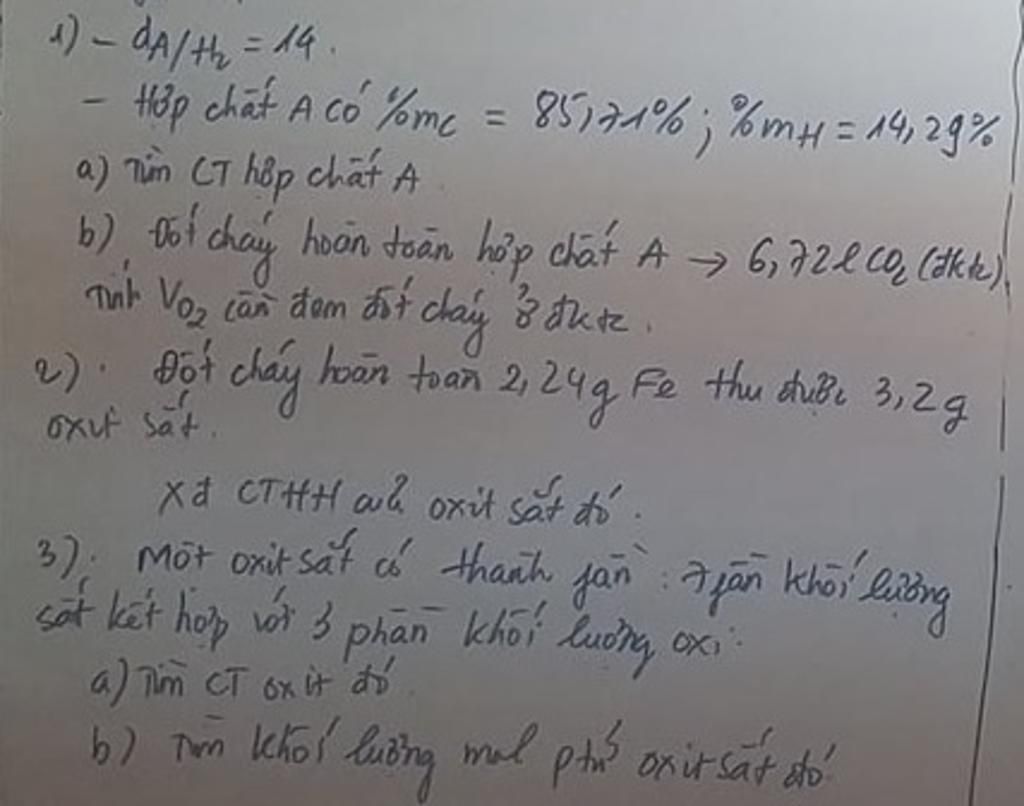 1) - dA/H2 = 14.
- Hợp chất A có %mC = 85,71%; %mH = 14,29%
a) Tìm CT hợp chất A
b) Đốt cháy hoàn toàn hợp chất A → 6,72l CO2 (đktc).
Tính VO2 cần đem đốt cháy ở đktc.
2). Đốt cháy hoàn toàn 2,24g Fe thu được 3,2g
oxit sắt.
Xđ CTHH của oxit sắt đó.
3). Một oxit sắt có thành fần : 7 fần khối lượng
sắt kết hợp với 3 phần khối lượng oxi.
a) Tìm CT oxit đó
b) Tìm khối lượng mol ptử oxit sắt đó